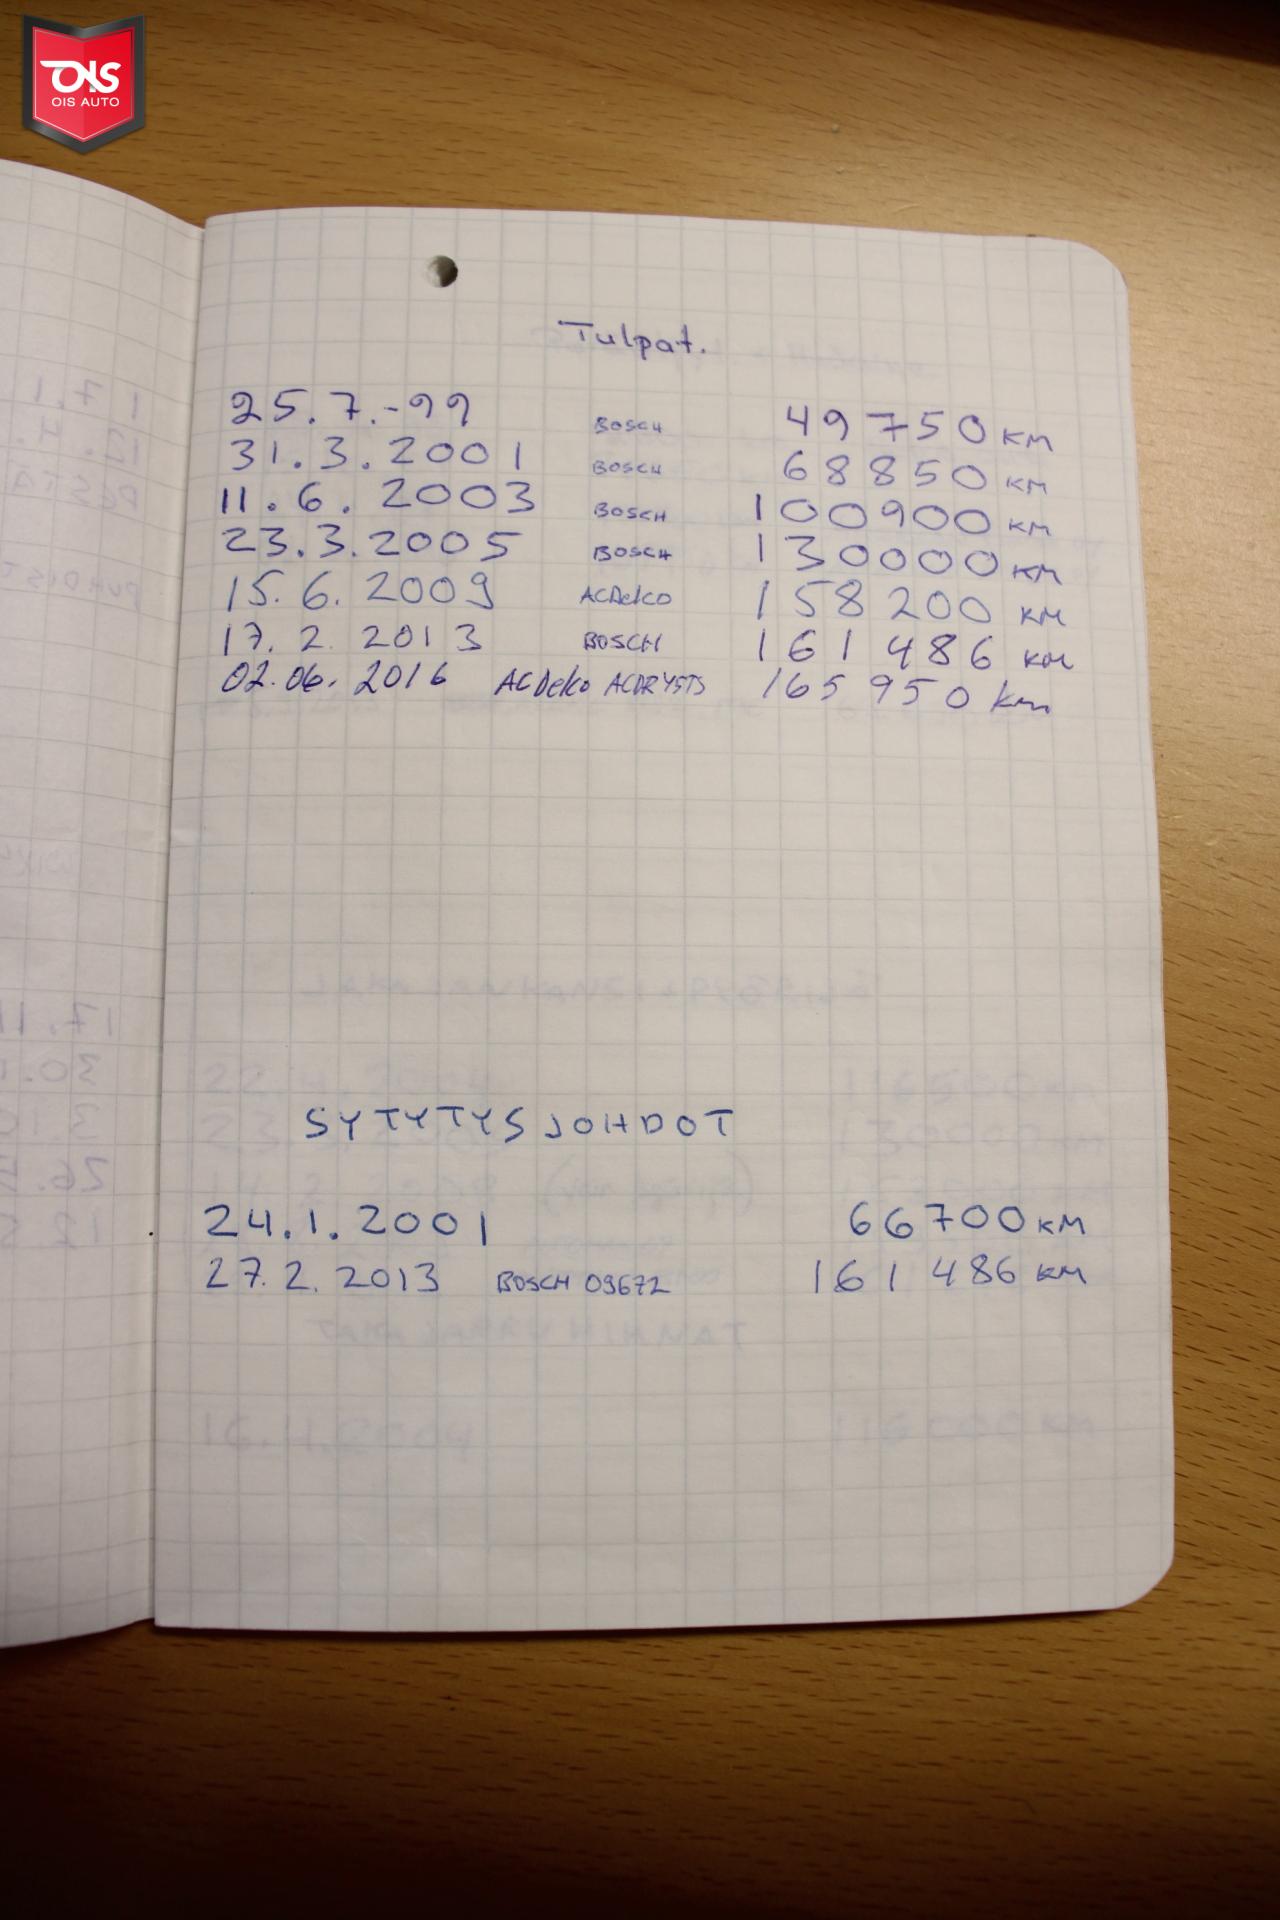 OIS
OIS AUTO
Tulpat.
25.7.-99 BOSCH 49750 KM
31.3.2001 BOSCH 68850 KM
11.6.2003 BOSCH 100900 KM
23.3.2005 BOSCH 130000 KM
15.6.2009 ACDelco 158200 KM
17.2.2013 BOSCH 161486 KM
02.06.2016 ACDelco 165950 km
SYTYTYSJOHDOT
24.1.2001 66700 KM
27.2.2013 BOSCH 09672 161486 KM